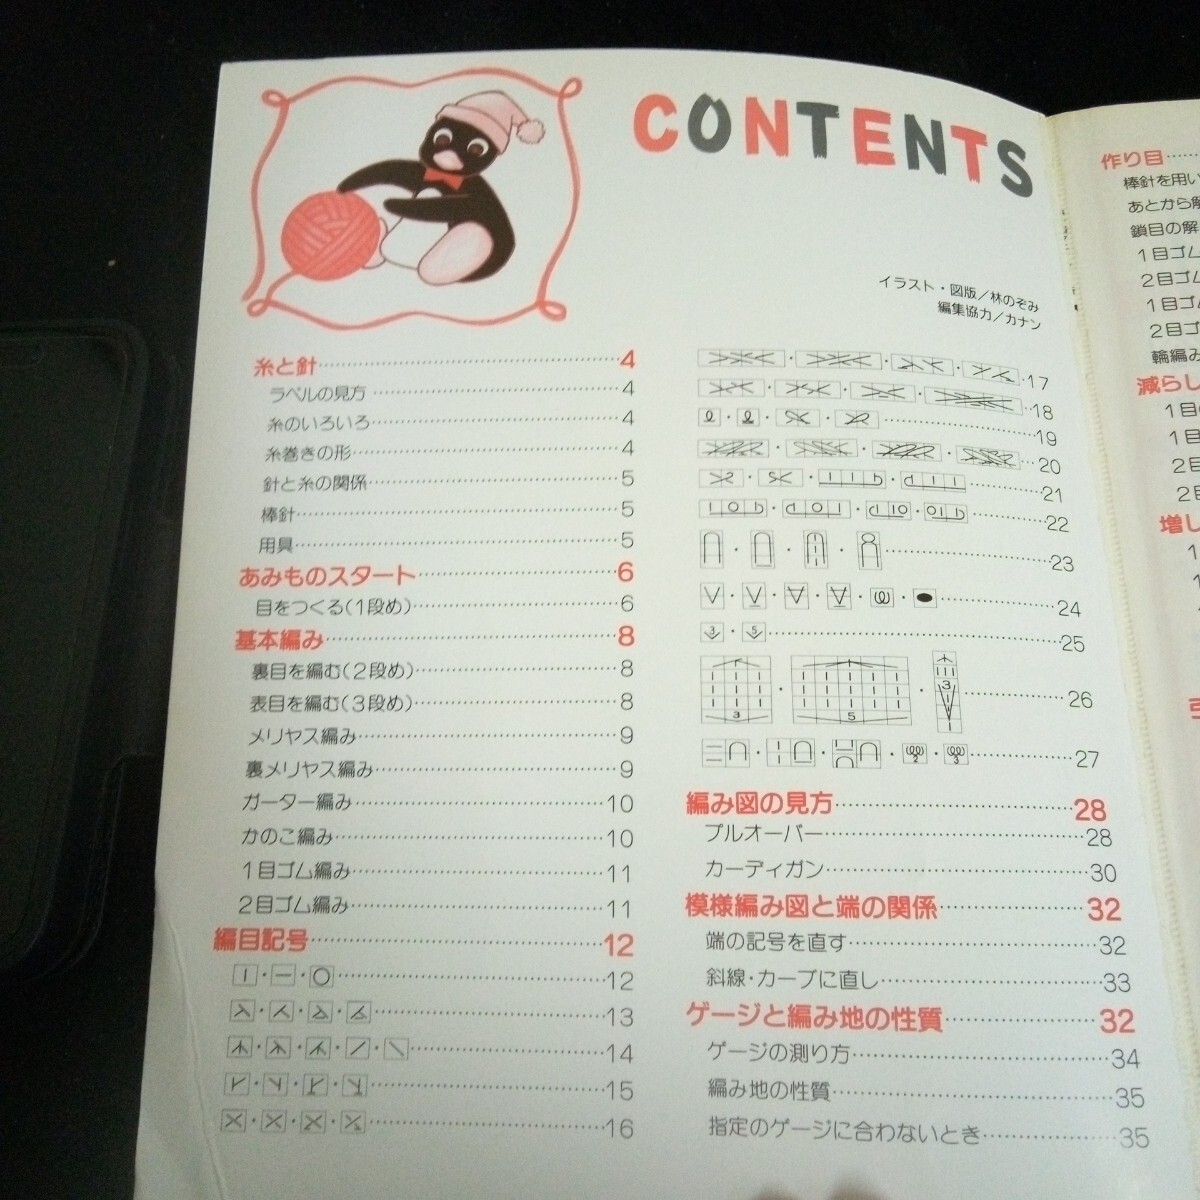 CONTENTS
イラスト・図版／林のぞみ
編集協力／カナン
糸と針……4
ラベルの見方……4
糸のいろいろ……4
糸巻きの形……4
針と糸の関係……5
棒針……5
用具……5
あみものスタート……6
目をつくる(1段め)……6
基本編み……8
裏目を編む(2段め)……8
表目を編む(3段め)……8
メリヤス編み……9
裏メリヤス編み……9
ガーター編み……10
かのこ編み……10
1目ゴム編み……11
2目ゴム編み……11
編目記号……12
……12
……13
……14
……15
……16
……17
……18
……19
……20
……21
……22
……23
……24
3・5……25
3・5・3……26
2・3……27
編み図の見方……28
プルオーバー……28
カーディガン……30
模様編み図と端の関係……32
端の記号を直す……32
斜線・カーブに直し……33
ゲージと編み地の性質……32
ゲージの測り方……34
編み地の性質……35
指定のゲージに合わないとき……35
作り目……
棒針を用い
あとから解
鎖目の解
1目ゴム
2目ゴム
1目ゴ
2目ゴ
輪編み
減らし
1目
1目
2目
2目
増し
1
1